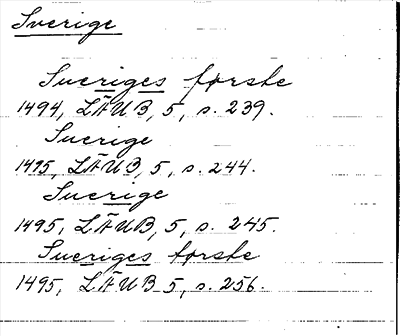 Sverige
Sveriges første
1494, LÄUB, 5, s. 239.
Sverige
1495, LÄUB, 5, s. 244.
Sverige
1495, LÄUB, 5, s. 245.
Sveriges første
1495, LÄUB 5, s. 256.